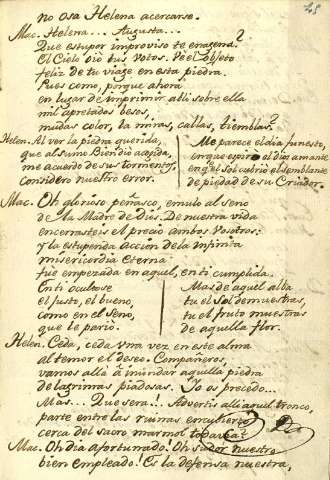 no osa Helena acercarse.
Mac. Helena... Augusta...
Que estupor improviso te enagena?
El Cielo oió tus Votos. Ve el objeto
feliz de tu viage en esta piedra.
Pues como, porque ahora
en lugar de imprimir alli sobre ella
mil apretados besos,
mudas color, la miras, callas, tiemblas?
Helen. Al ver la piedra querida,
que al sumo Bien dió acogida,
me acuerdo de sus tormentos,
considero nuestro error.
Me parece el dia funesto,
en que espiró el dios amante
en q.e el sol cubrió el semblante
de piedad de su Criador.
Mac. Oh glorioso peñasco, emulo al seno
de la Madre de dios. De nuestra vida
encerrasteis el precio ambos Vosotros:
y la estupenda accion de la infinita
misericordia Eterna
fue empezada en aquel, en ti cumplida.
En ti ocultose
el justo, el bueno,
como en el seno,
que le parió.
Mas de aquel alba
tu el sol demuestras,
tu el fruto muestras
de aquella flor.
Helen. Ceda, ceda una vez en este alma
al temor el deseo. Compañeros,
vamos alli à inundar aquella piedra
de lagrimas piadosas. Yo os precedo...
Mas... Que sera!.. Advertis alli aquel tronco,
parte entre las ruinas encubierto
cerca del sacro marmol
Mac. Oh dia afortunado! Oh sudor nuestro
bien empleado! Es la defensa nuestra,